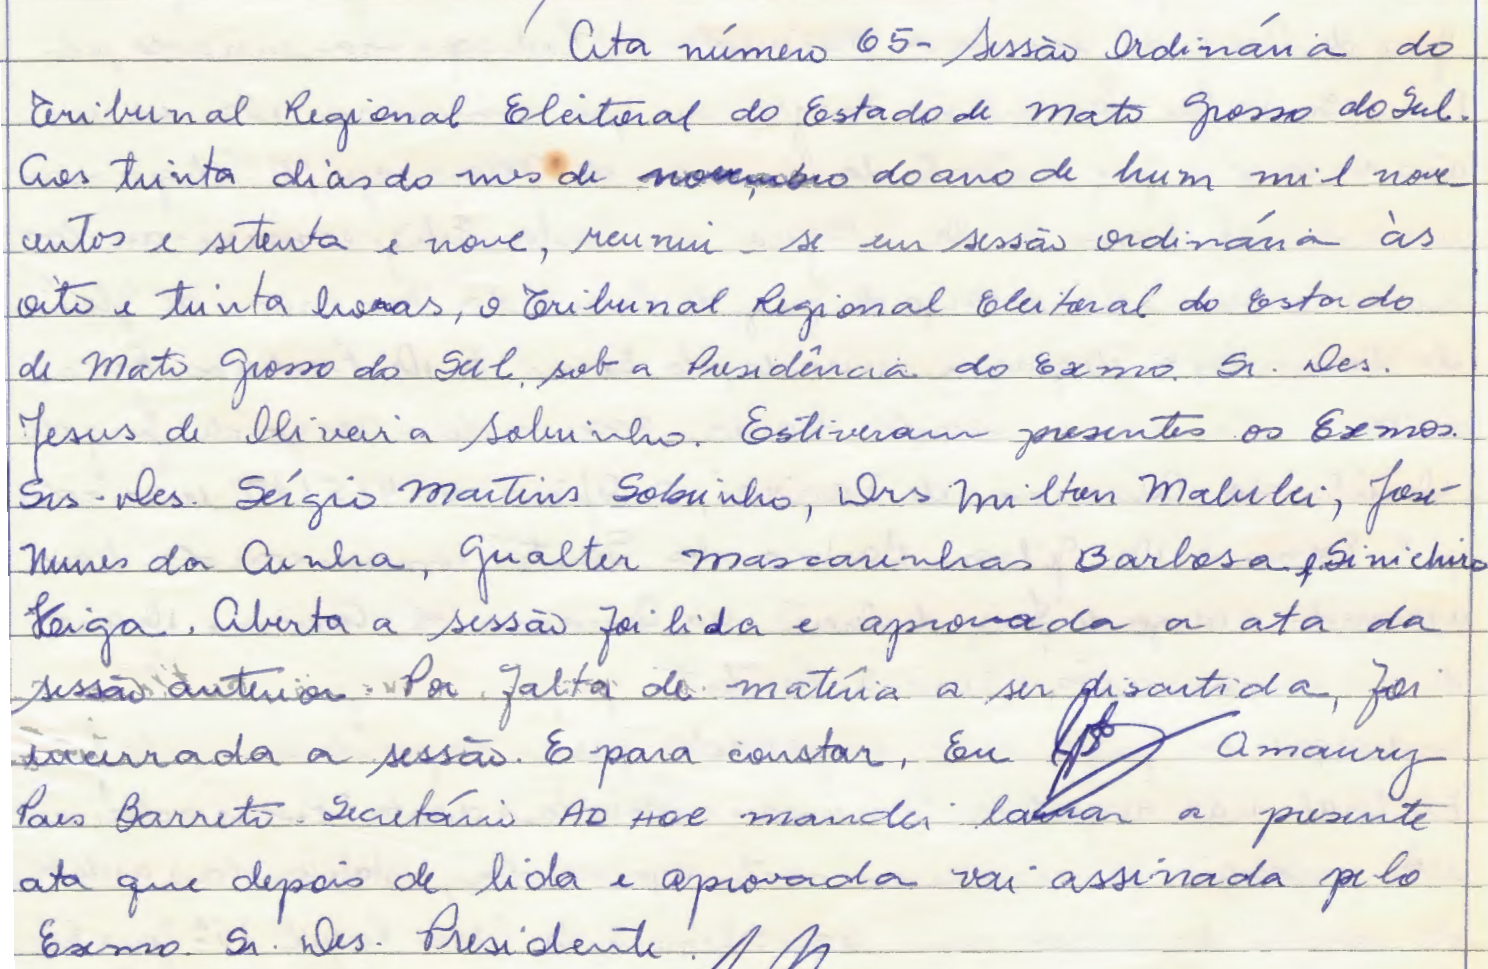 Ata número 65 - Sessão Ordinária do
Tribunal Regional Eleitoral do Estado de Mato Grosso do Sul.
Aos trinta dias do mes de novembro do ano de hum mil nove
centos e setenta e nove, reuniu-se em sessão ordinária às
oito e trinta horas, o Tribunal Regional Eleitoral do Estado
de Mato Grosso do Sul, sob a Presidência do Exmo. Sr. Des.
Jesus de Oliveira Sobrinho. Estiveram presentes os Exmos.
Srs. Des. Sérgio Martins Sobrinho, Drs Milton Malulei, José
Nunes da Cunha, Gualter Mascarenhas Barbosa e Sinichiro
Keiga. Aberta a sessão foi lida e aprovada a ata da
sessão anterior. Por falta de matéria a ser discutida, foi
encerrada a sessão. E para constar, Eu Amaury
Paes Barreto - Secretário AD HOC mandei lavrar a presente
ata que depois de lida e aprovada vai assinada pelo
Exmo. Sr. Des. Presidente.